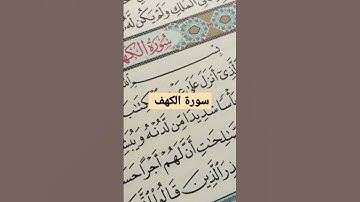 فِي الْمُلْكِ وَلَمْ يَكُن لَّهُ
سُورَةُ الْكَهْفِ
سورة الكهف
الَّذِي أَنزَلَ عَلَىٰ
بَأْسًا شَدِيدًا مِّن لَّدُنْهُ وَيُبَشِّ
الصَّٰلِحَٰتِ أَنَّ لَهُمْ أَجْرًا حَسَ
الَّذِينَ قَالُوا